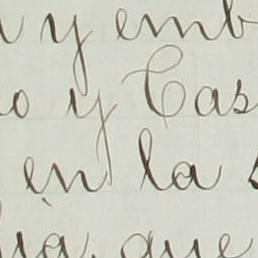 y emb
o y Cas
en la s
que